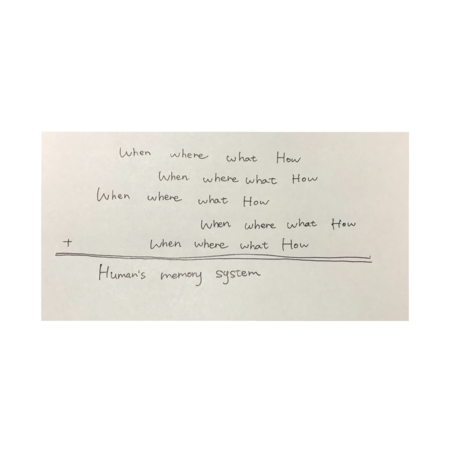 When where what How
When where what How
When where what How
When where what How
+ When where what How
Human's memory system